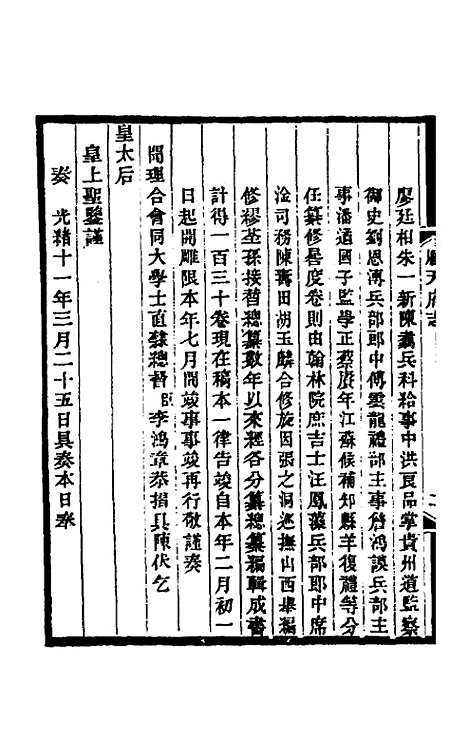 廖廷相朱一新陳翥兵科給事中洪良品掌貴州道監察
御史劉恩溥兵部郎中傅雲龍禮部主事詹鴻謨兵部主
事潘遹國子監學正蔡賡年江蘇候補知縣羊復禮等分
任纂修晷度卷則由翰林院庶吉士汪鳳藻兵部郎中席
淦司務陳壽田胡玉麟合修旋因張之洞巡撫山西舉編
修繆荃孫接替總纂數年以來經各分纂總纂編輯成書
計得一百三十卷現在稿本一律告竣自本年二月初一
日起開雕限本年七月間竣事事竣再行敬謹奏
聞理合會同大學士直隸總督臣李鴻章恭摺具陳伏乞
皇太后
皇上聖鑒謹
奏 光緒十一年三月二十五日具奏本日奉
天府志